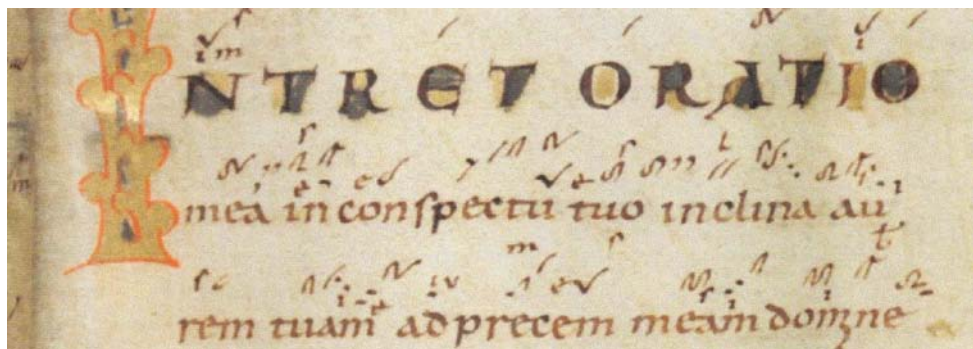 INTRET ORATIO
mea in conspectu tuo inclina au
rem tuam ad precem meam domine